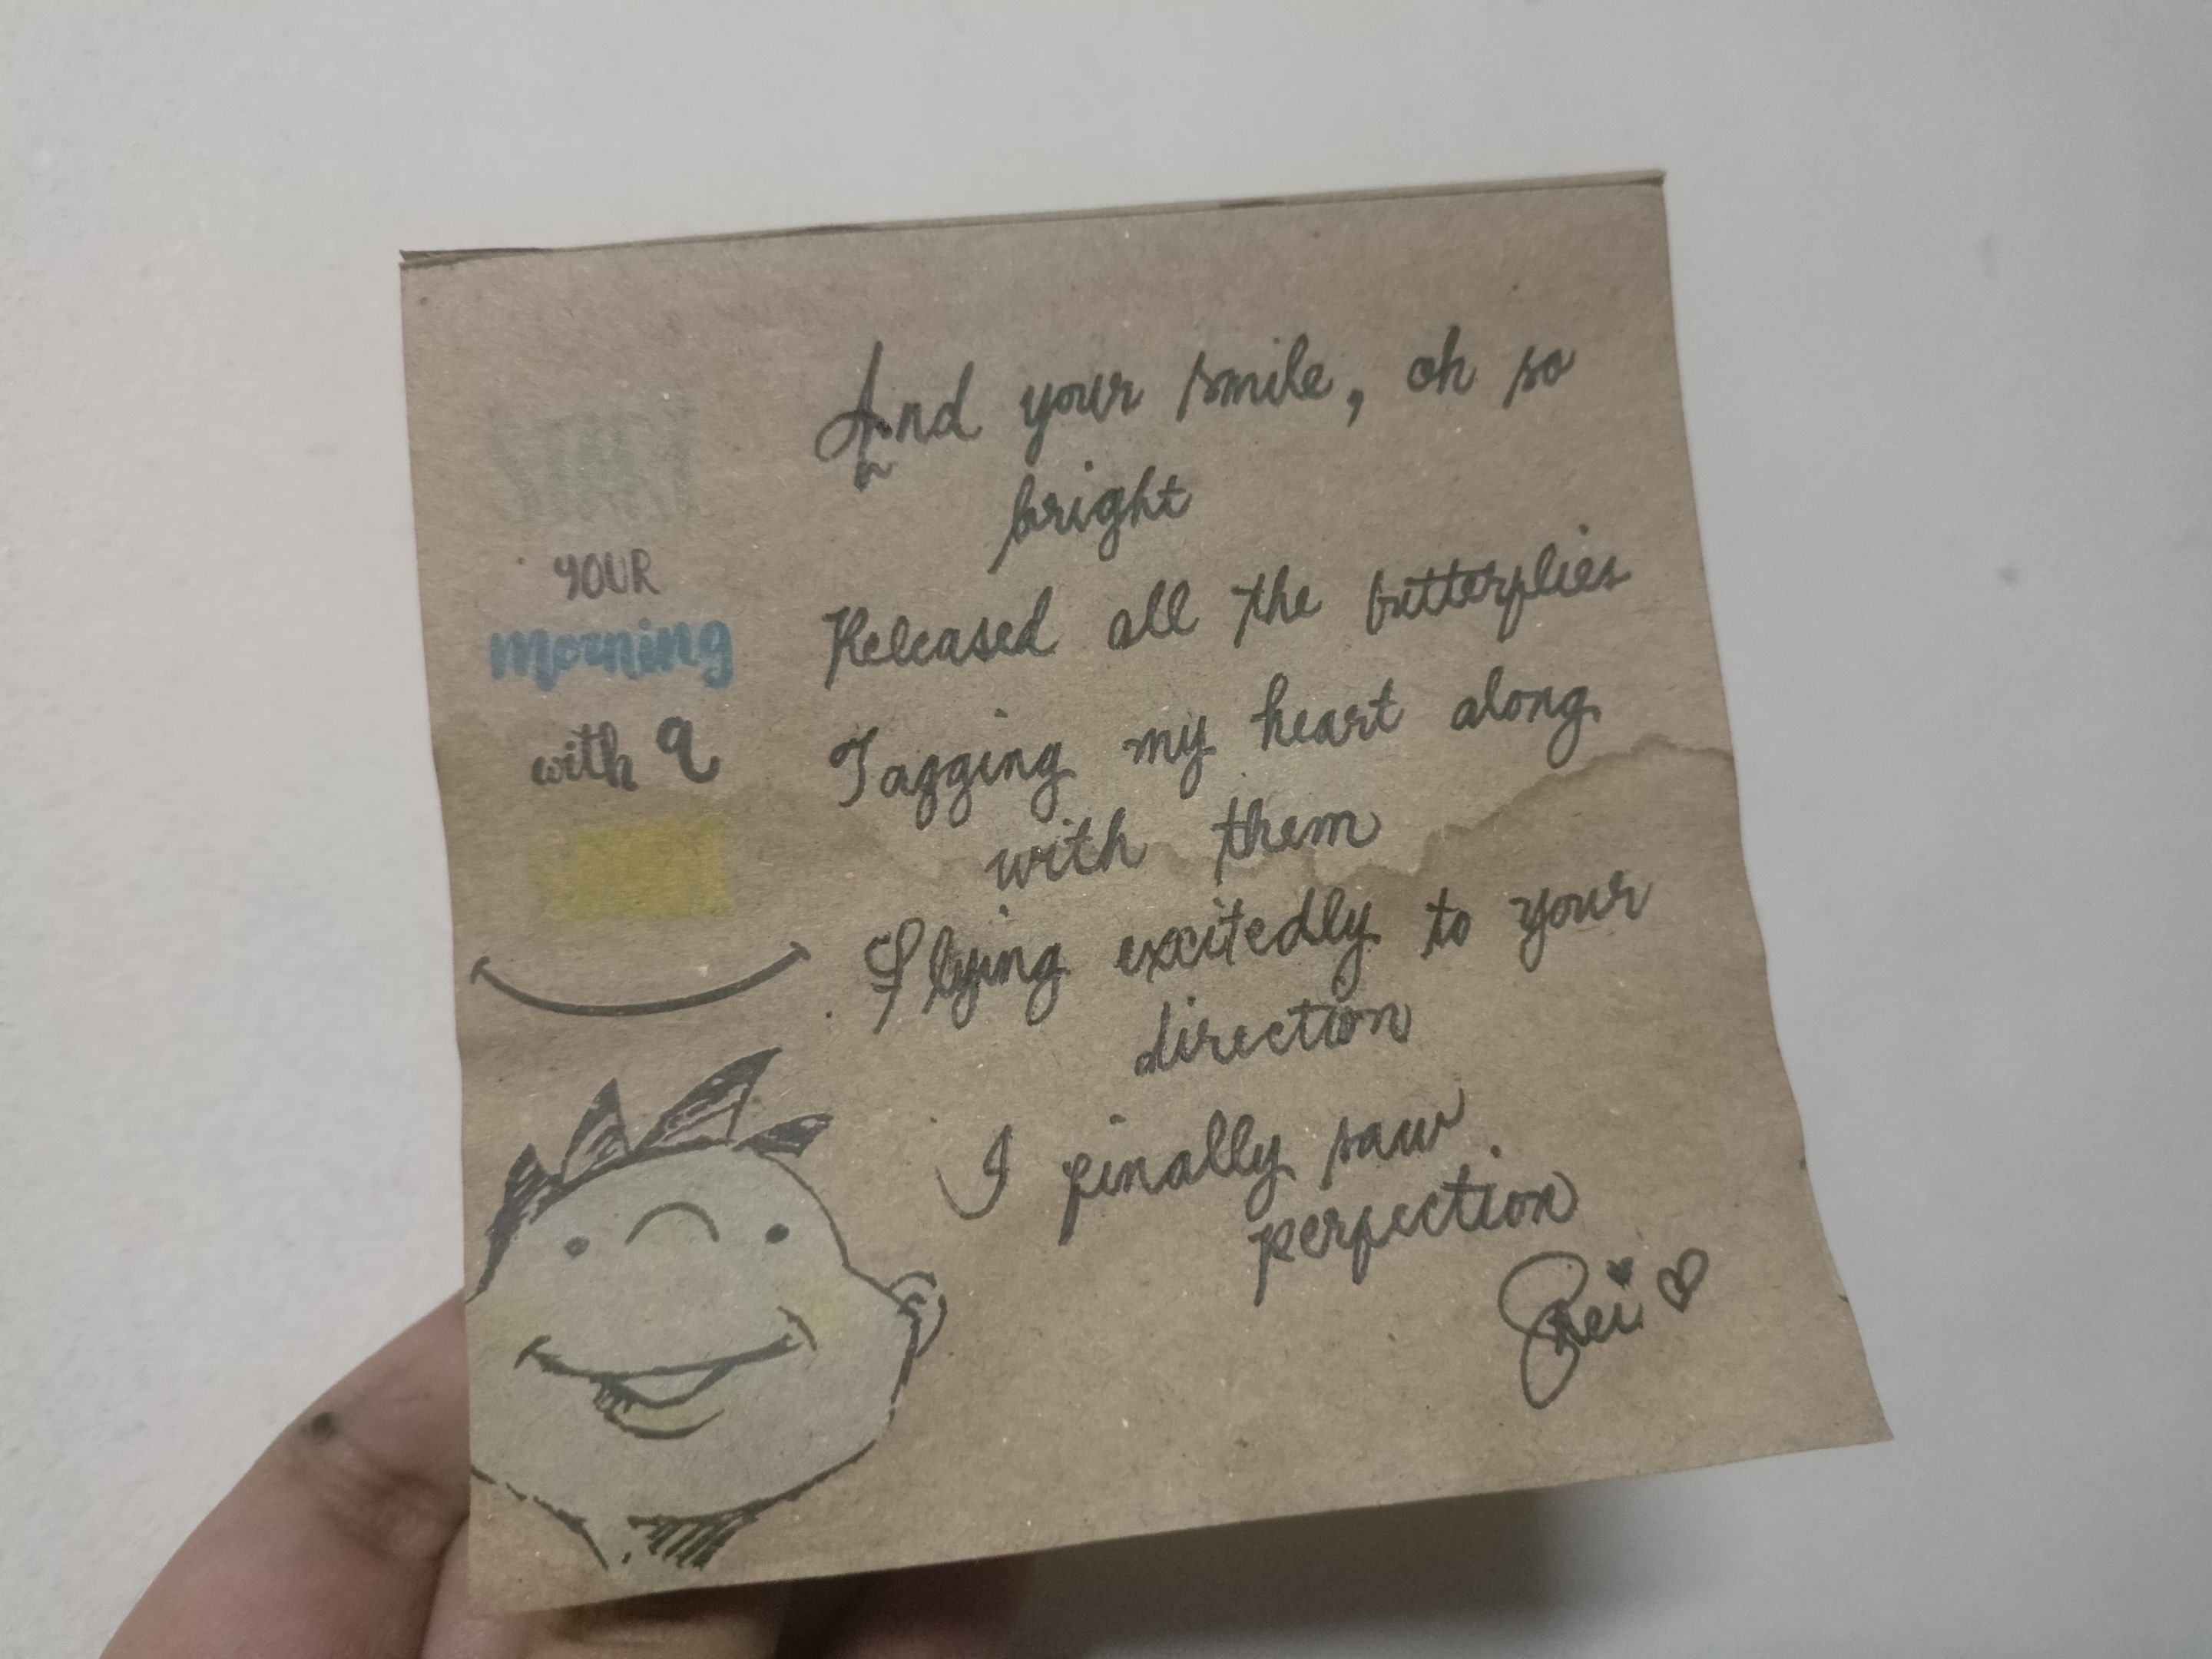 START
YOUR
morning
with a
And your smile, oh so
bright
Released all the butterflies
Tagging my heart along
with them
Flying excitedly to your
direction
I finally saw
perfection